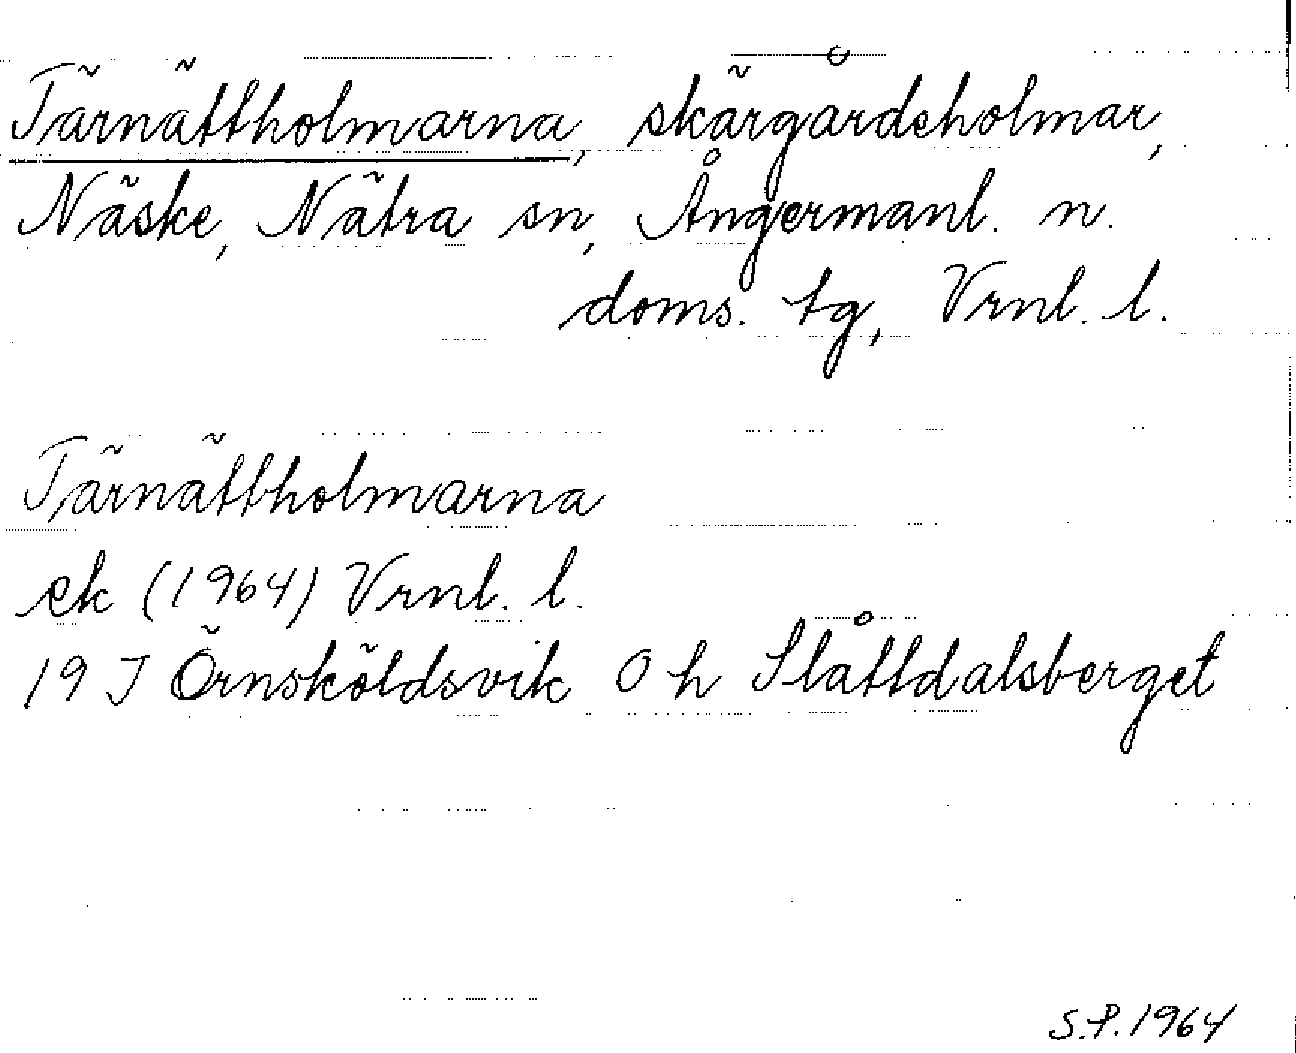 Tärnättholmarna, skärgårdsholmar,
Näske, Nätra sn, Ångermanl. n.
doms. tg, Vrnl. l.
Tärnättholmarna
ek (1964) Vrnl. l.
19 J Örnsköldsvik O h Slåttdalsberget
S.P. 1964